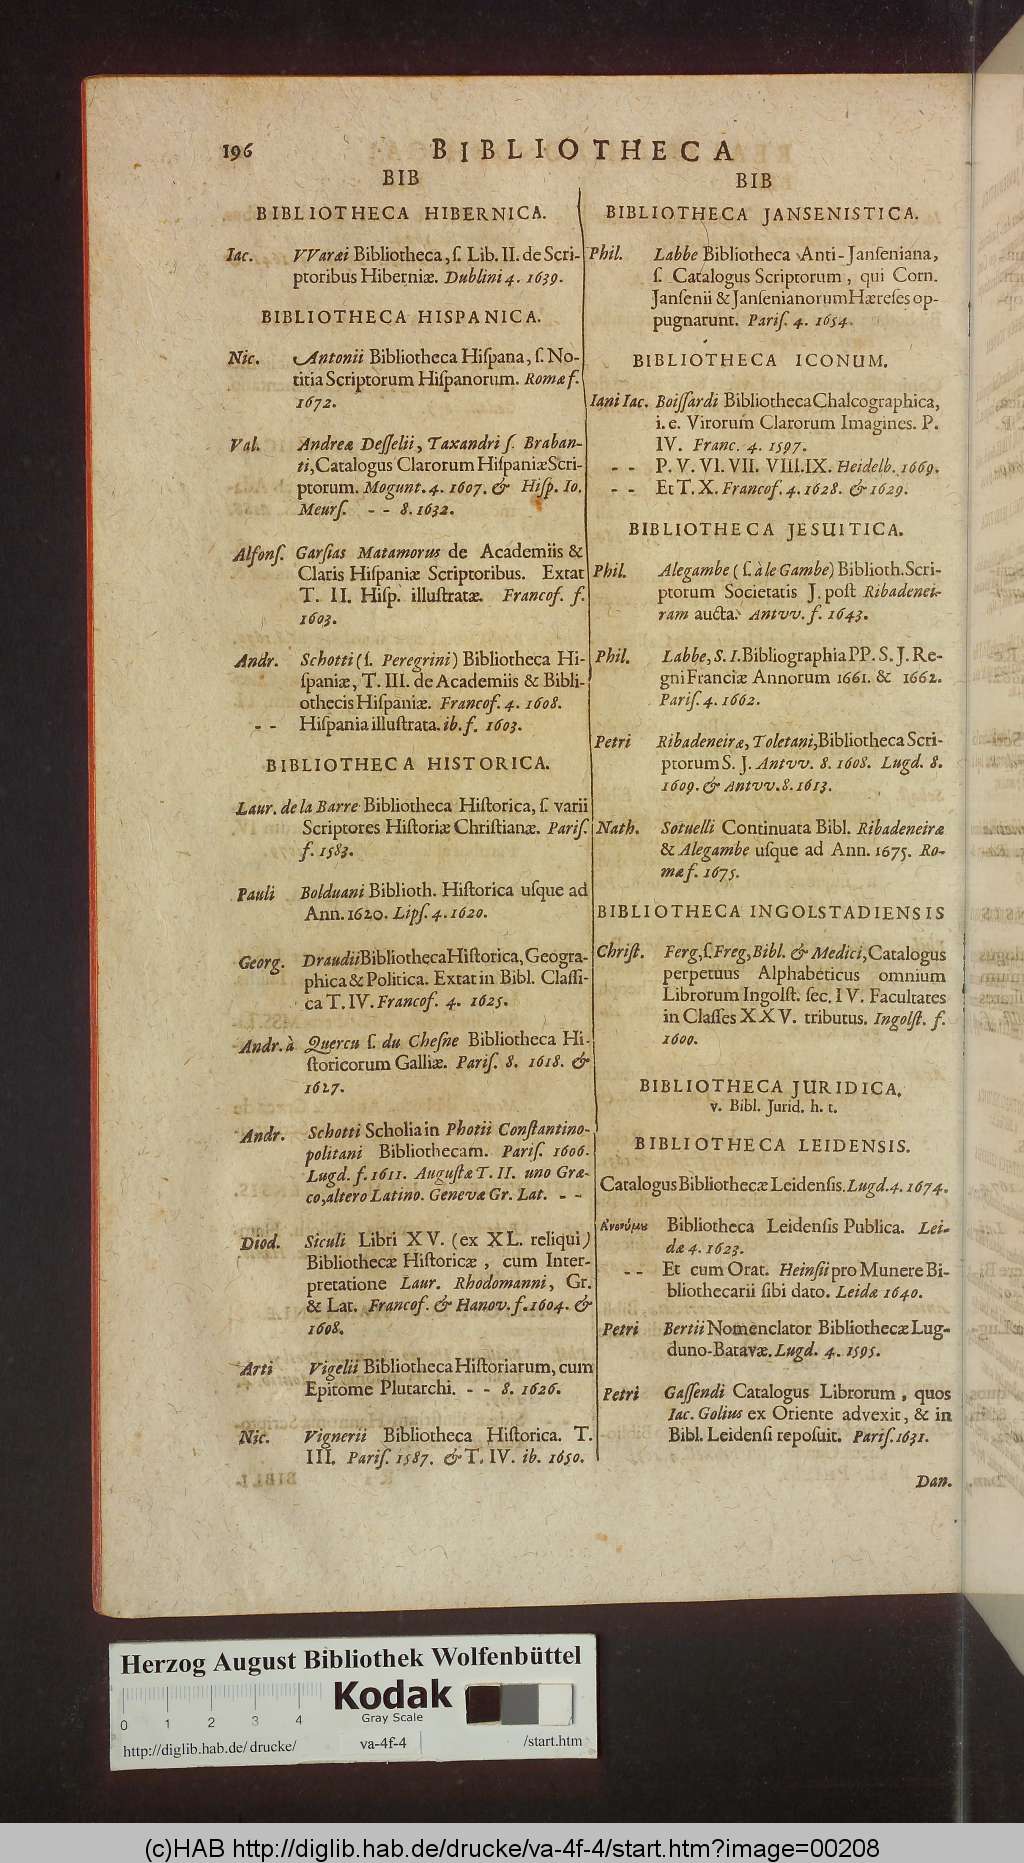 196 BIBLIOTHECA
BIB
BIBLIOTHECA HIBERNICA.
Iac. VVaræi Bibliotheca, ſ. Lib. II. de Scri-
ptoribus Hiberniæ. Dublini 4. 1639.
BIBLIOTHECA HISPANICA.
Nic. Antonii Bibliotheca Hiſpana, ſ. No-
titia Scriptorum Hiſpanorum. Romæ f.
1672.
Val. Andreæ Deſſelii, Taxandri ſ. Braban-
ti, Catalogus Clarorum Hiſpaniæ Scri-
ptorum. Mogunt. 4. 1607. & Hiſp. Io.
Meurſ. - - 8. 1632.
Alfonſ. Garſias Matamorus de Academiis &
Claris Hiſpaniæ Scriptoribus. Extat
T. II. Hiſp. illuſtratæ. Francof. f.
1603.
Andr. Schotti (ſ. Peregrini) Bibliotheca Hi-
ſpaniæ, T. III. de Academiis & Bibli-
othecis Hiſpaniæ. Francof. 4. 1608.
- - Hiſpania illuſtrata. ib. f. 1603.
BIBLIOTHECA HISTORICA.
Laur. de la Barre Bibliotheca Hiſtorica, ſ. varii
Scriptores Hiſtoriæ Chriſtianæ. Pariſ.
f. 1583.
Pauli Bolduani Biblioth. Hiſtorica uſque ad
Ann. 1620. Lipſ. 4. 1620.
Georg. Draudii Bibliotheca Hiſtorica, Geogra-
phica & Politica. Extat in Bibl. Claſſi-
ca T. IV. Francof. 4. 1625.
Andr. à Quercu ſ. du Cheſne Bibliotheca Hi-
ſtoricorum Galliæ. Pariſ. 8. 1618. &
1627.
Andr. Schotti Scholia in Photii Conſtantino-
politani Bibliothecam. Pariſ. 1606.
Lugd. f. 1611. Auguſtæ T. II. uno Græ-
co, altero Latino. Genevæ Gr. Lat. - -
Diod. Siculi Libri XV. (ex XL. reliqui)
Bibliothecæ Hiſtoricæ, cum Inter-
pretatione Laur. Rhodomanni, Gr.
& Lat. Francof. & Hanov. f. 1604. &
1608.
Arti Vigelii Bibliotheca Hiſtoriarum, cum
Epitome Plutarchi. - - 8. 1626.
Nic. Vignerii Bibliotheca Hiſtorica. T.
III. Pariſ. 1587. & T. IV. ib. 1650.
BIB
BIBLIOTHECA JANSENISTICA.
Phil. Labbe Bibliotheca Anti-Janſeniana,
ſ. Catalogus Scriptorum, qui Corn.
Janſenii & Janſenianorum Hæreſes op-
pugnarunt. Pariſ. 4. 1654.
BIBLIOTHECA ICONUM.
Iani Iac. Boiſſardi Bibliotheca Chalcographica,
i. e. Virorum Clarorum Imagines. P.
IV. Franc. 4. 1597.
- - P. V. VI. VII. VIII. IX. Heidelb. 1669.
- - Et T. X. Francof. 4. 1628. & 1629.
BIBLIOTHECA JESUITICA.
Phil. Alegambe (ſ. à le Gambe) Biblioth. Scri-
ptorum Societatis J. poſt Ribadenei-
ram aucta. Antvv. f. 1643.
Phil. Labbe, S. I. Bibliographia PP. S. J. Re-
gni Franciæ Annorum 1661. & 1662.
Pariſ. 4. 1662.
Petri Ribadeneiræ, Toletani, Bibliotheca Scri-
ptorum S. J. Antvv. 8. 1608. Lugd. 8.
1609. & Antvv. 8. 1613.
Nath. Sotuelli Continuata Bibl. Ribadeneiræ
& Alegambe uſque ad Ann. 1675. Ro-
mæ f. 1675.
BIBLIOTHECA INGOLSTADIENSIS
Chriſt. Ferg, ſ. Freg, Bibl. & Medici, Catalogus
perpetuus Alphabeticus omnium
Librorum Ingolſt. ſec. IV. Facultates
in Claſſes XXV. tributus. Ingolſt. f.
1600.
BIBLIOTHECA JURIDICA.
v. Bibl. Jurid. h. t.
BIBLIOTHECA LEIDENSIS.
Catalogus Bibliothecæ Leidenſis. Lugd. 4. 1674.
Ἀνονύμου Bibliotheca Leidenſis Publica. Lei-
dæ 4. 1623.
- - Et cum Orat. Heinſii pro Munere Bi-
bliothecarii ſibi dato. Leidæ 1640.
Petri Bertii Nomenclator Bibliothecæ Lug-
duno-Batavæ. Lugd. 4. 1595.
Petri Gaſſendi Catalogus Librorum, quos
Iac. Golius ex Oriente advexit, & in
Bibl. Leidenſi repoſuit. Pariſ. 1631.
Dan.
Herzog August Bibliothek Wolfenbüttel
Kodak
Gray Scale
0 1 2 3 4
http://diglib.hab.de/drucke/ va-4f-4 /start.htm
(c)HAB http://diglib.hab.de/drucke/va-4f-4/start.htm?image=00208